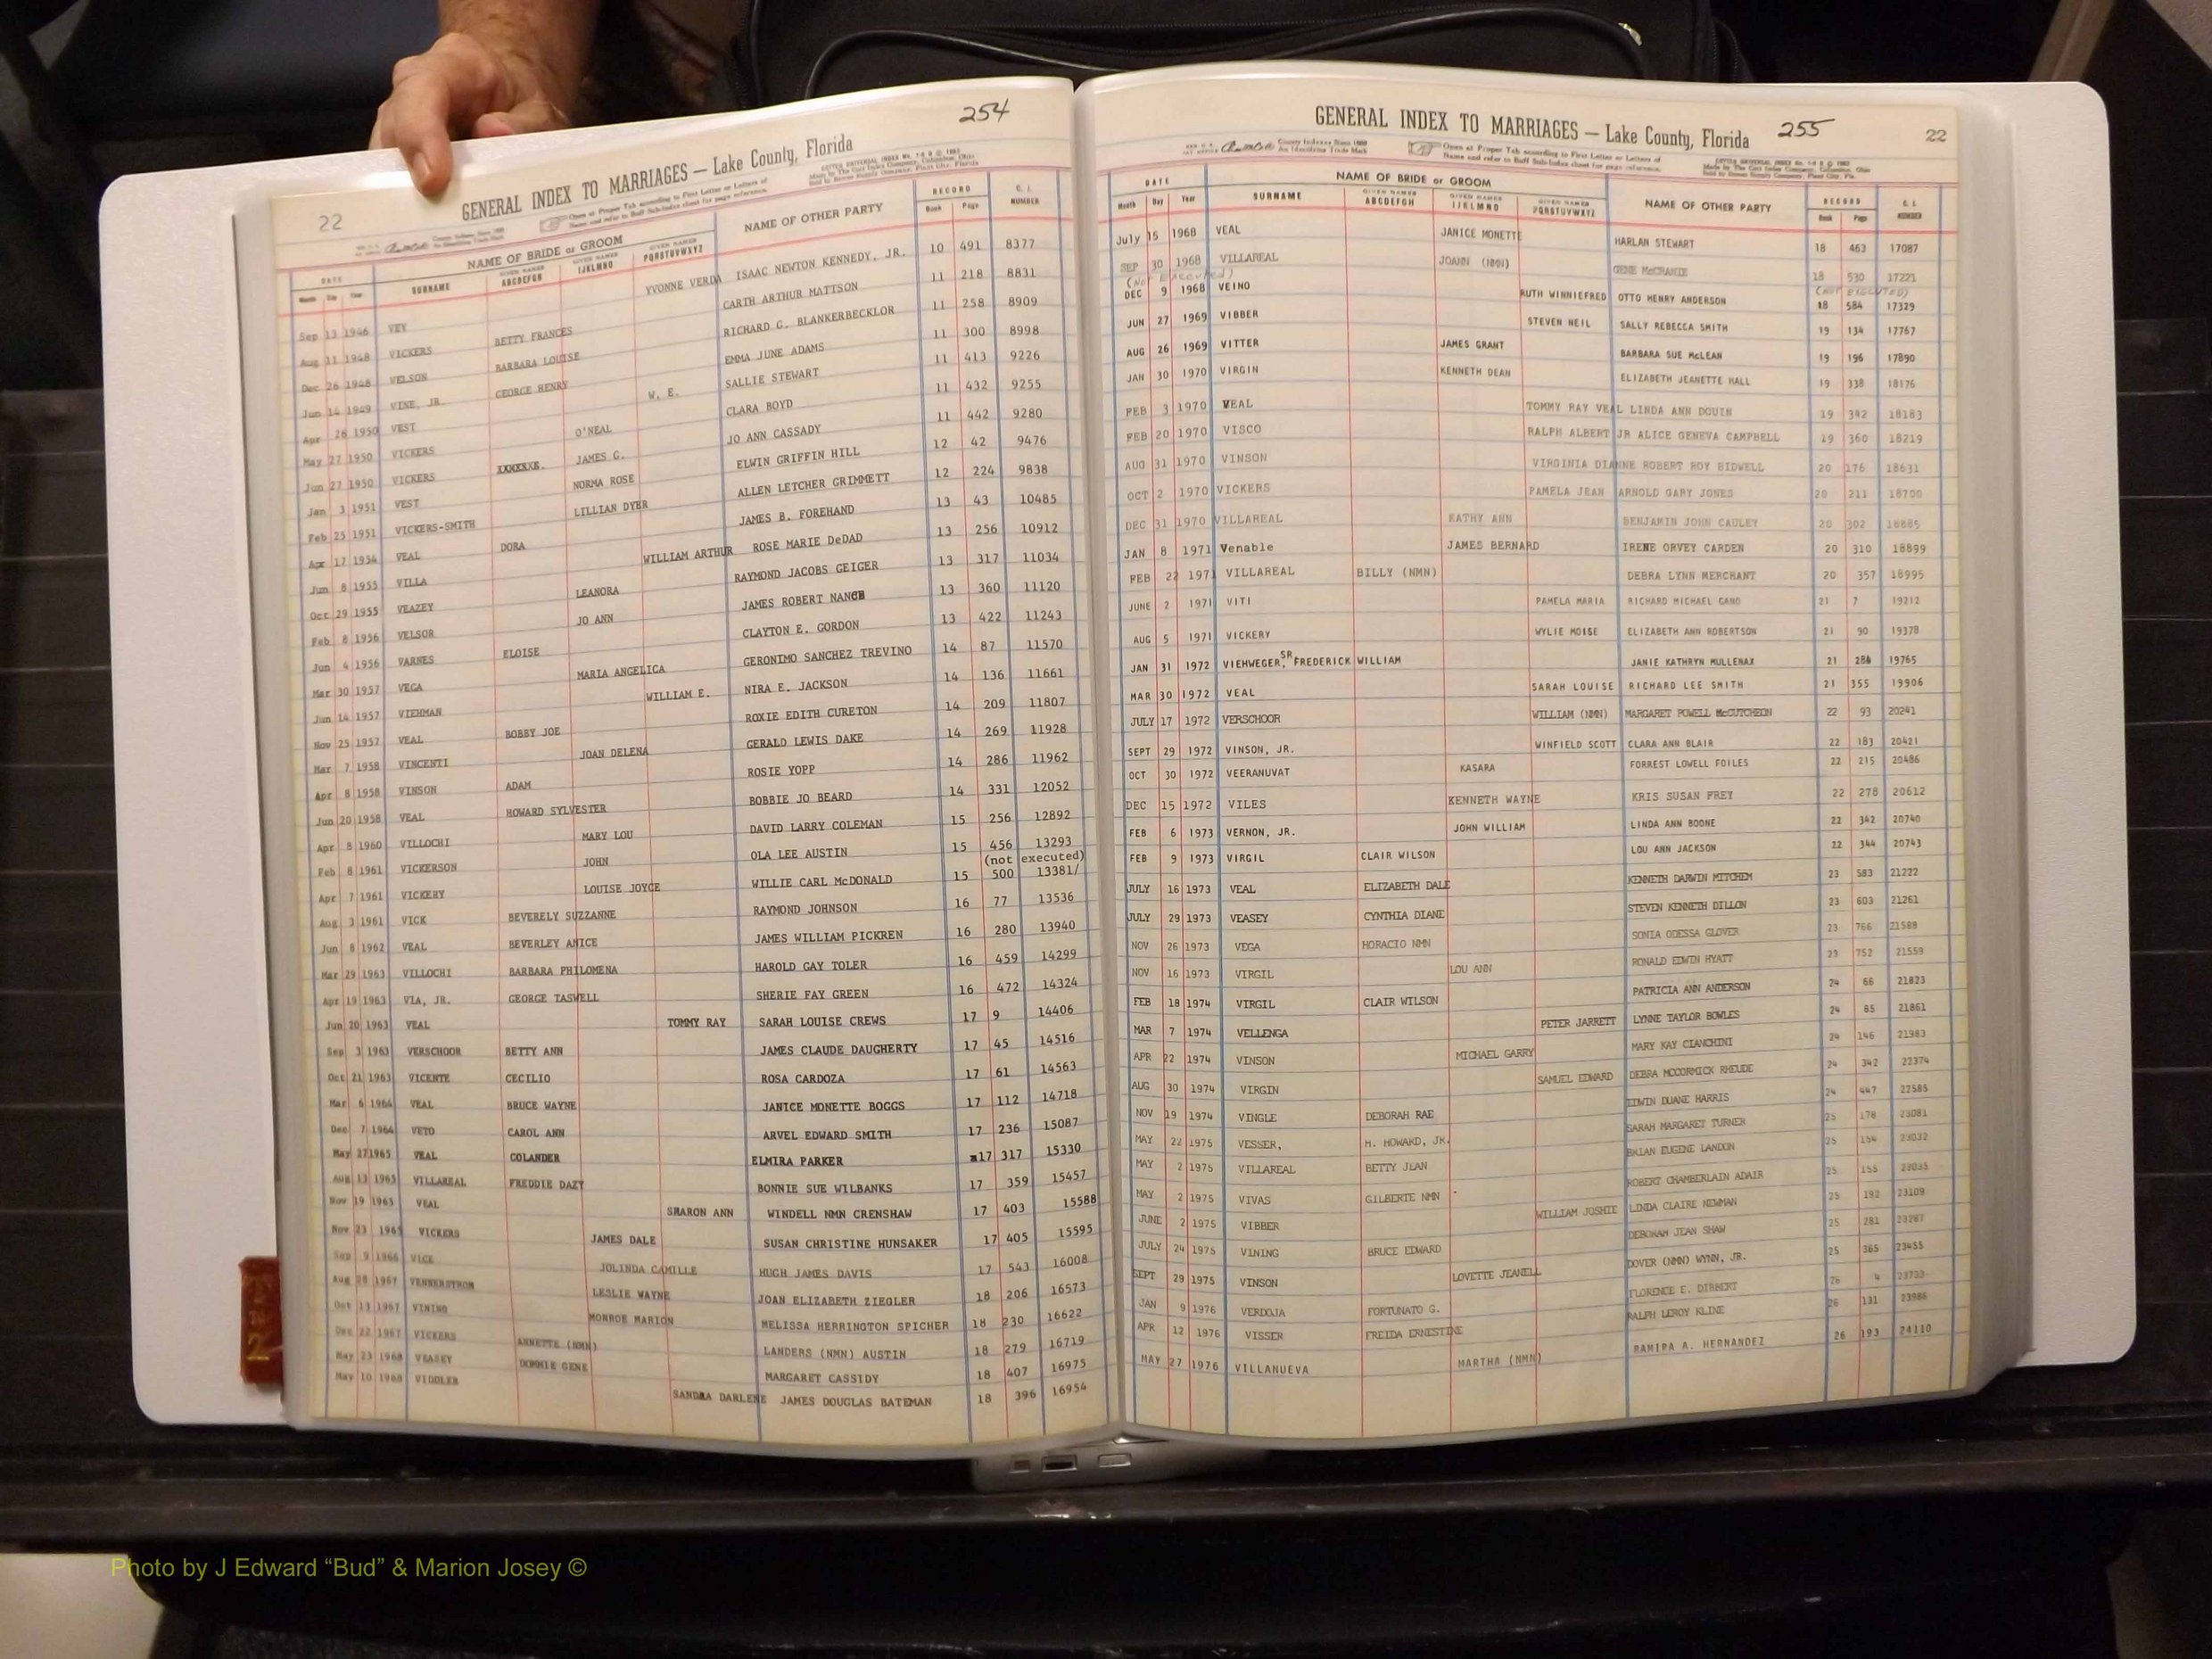 254
22
GENERAL INDEX TO MARRIAGES — Lake County, Florida
DATE NAME OF BRIDE or GROOM NAME OF OTHER PARTY RECORD C. I.
Month Day Year SURNAME GIVEN NAMES ABCDEFGH GIVEN NAMES IJKLMNO GIVEN NAMES PQRSTUVWXYZ Book Page NUMBER
Sep 13 1946 VEY YVONNE VERDA ISAAC NEWTON KENNEDY, JR. 10 491 8377
Aug 11 1948 VICKERS BETTY FRANCES CARTH ARTHUR MATTSON 11 218 8831
Dec 26 1948 VELSON BARBARA LOUISE RICHARD G. BLANKERBECKLOR 11 258 8909
Jun 14 1949 VINE, JR. GEORGE HENRY EMMA JUNE ADAMS 11 300 8998
Apr 26 1950 VEST W. E. SALLIE STEWART 11 413 9226
May 27 1950 VICKERS O'NEAL CLARA BOYD 11 432 9255
Jun 27 1950 VICKERS JAMES G. JO ANN CASSADY 11 442 9280
Jan 3 1951 VEST NORMA ROSE ELWIN GRIFFIN HILL 12 42 9476
Feb 25 1951 VICKERS-SMITH LILLIAN DYER ALLEN LETCHER GRIMMETT 12 224 9838
Apr 17 1954 VEAL DORA JAMES B. FOREHAND 13 43 10485
Jun 8 1955 VILLA WILLIAM ARTHUR ROSE MARIE DeDAD 13 256 10912
Oct 29 1955 VEAZEY LEANORA RAYMOND JACOBS GEIGER 13 317 11034
Feb 8 1956 VELSOR JO ANN JAMES ROBERT NANCE 13 360 11120
Jun 4 1956 VARNES ELOISE CLAYTON E. GORDON 13 422 11243
Mar 30 1957 VEGA MARIA ANGELICA GERONIMO SANCHEZ TREVINO 14 87 11570
Jun 14 1957 VIEHMAN WILLIAM E. NIRA E. JACKSON 14 136 11661
Nov 25 1957 VEAL BOBBY JOE ROXIE EDITH CURETON 14 209 11807
Mar 7 1958 VINCENTI JOAN DELENA GERALD LEWIS DAKE 14 269 11928
Apr 8 1958 VINSON ADAM ROSIE YOPP 14 286 11962
Jun 20 1958 VEAL HOWARD SYLVESTER BOBBIE JO BEARD 14 331 12052
Apr 8 1960 VILLOCHI MARY LOU DAVID LARRY COLEMAN 15 256 12892
Feb 8 1961 VICKERSON JOHN OLA LEE AUSTIN 15 456 13293
(not executed)
Apr 7 1961 VICKERY LOUISE JOYCE WILLIE CARL McDONALD 15 500 13381/
Aug 3 1961 VICK BEVERELY SUZZANNE RAYMOND JOHNSON 16 77 13536
Jun 8 1962 VEAL BEVERLEY ANICE JAMES WILLIAM PICKREN 16 280 13940
Mar 29 1963 VILLOCHI BARBARA PHILOMENA HAROLD GAY TOLER 16 459 14299
Apr 19 1963 VIA, JR. GEORGE TASWELL SHERIE FAY GREEN 16 472 14324
Jun 20 1963 VEAL TOMMY RAY SARAH LOUISE CREWS 17 9 14406
Sep 3 1963 VERSCHOOR BETTY ANN JAMES CLAUDE DAUGHERTY 17 45 14516
Oct 21 1963 VICENTE CECILIO ROSA CARDOZA 17 61 14563
Mar 6 1964 VEAL BRUCE WAYNE JANICE MONETTE BOGGS 17 112 14718
Dec 7 1964 VETO CAROL ANN ARVEL EDWARD SMITH 17 236 15087
May 27 1965 VEAL COLANDER ELMIRA PARKER 17 317 15330
Aug 13 1965 VILLAREAL FREDDIE DAZY BONNIE SUE WILBANKS 17 359 15457
Nov 19 1965 VEAL SHARON ANN WINDELL NMN CRENSHAW 17 403 15588
Nov 23 1965 VICKERS JAMES DALE SUSAN CHRISTINE HUNSAKER 17 405 15595
Sep 9 1966 VICE JOLINDA CAMILLE HUGH JAMES DAVIS 17 543 16008
Aug 28 1967 VENNERSTROM LESLIE WAYNE JOAN ELIZABETH ZIEGLER 18 206 16573
Oct 13 1967 VINING MONROE MARION MELISSA HERRINGTON SPICHER 18 230 16622
Dec 22 1967 VICKERS ANNETTE (NMN) LANDERS (NMN) AUSTIN 18 279 16719
May 23 1968 VEASEY DONNIE GENE MARGARET CASSIDY 18 407 16975
May 10 1968 VIDDLER SANDRA DARLENE JAMES DOUGLAS BATEMAN 18 396 16954
255
22
GENERAL INDEX TO MARRIAGES — Lake County, Florida
DATE NAME OF BRIDE or GROOM NAME OF OTHER PARTY RECORD C. I.
Month Day Year SURNAME GIVEN NAMES ABCDEFGH GIVEN NAMES IJKLMNO GIVEN NAMES PQRSTUVWXYZ Book Page NUMBER
July 15 1968 VEAL JANICE MONETTE HARLAN STEWART 18 463 17087
SEP 30 1968 VILLAREAL JOANN (NMN) GENE McCRANIE 18 530 17221
(NOT EXECUTED) (NOT EXECUTED)
DEC 9 1968 VEINO RUTH WINNIEFRED OTTO HENRY ANDERSON 18 584 17329
JUN 27 1969 VIBBER STEVEN NEIL SALLY REBECCA SMITH 19 134 17767
AUG 26 1969 VITTER JAMES GRANT BARBARA SUE McLEAN 19 196 17890
JAN 30 1970 VIRGIN KENNETH DEAN ELIZABETH JEANETTE HALL 19 338 18176
FEB 3 1970 VEAL TOMMY RAY VEAL LINDA ANN DOUIN 19 342 18183
FEB 20 1970 VISCO RALPH ALBERT JR ALICE GENEVA CAMPBELL 19 360 18219
AUG 31 1970 VINSON VIRGINIA DIANNE ROBERT ROY BIDWELL 20 176 18631
OCT 2 1970 VICKERS PAMELA JEAN ARNOLD GARY JONES 20 211 18700
DEC 31 1970 VILLAREAL KATHY ANN BENJAMIN JOHN CAULEY 20 302 18885
JAN 8 1971 Venable JAMES BERNARD IRENE ORVEY CARDEN 20 310 18899
FEB 22 1971 VILLAREAL BILLY (NMN) DEBRA LYNN MERCHANT 20 357 18995
JUNE 2 1971 VITI PAMELA MARIA RICHARD MICHAEL GANO 21 7 19212
AUG 5 1971 VICKERY WYLIE MOISE ELIZABETH ANN ROBERTSON 21 90 19378
JAN 31 1972 VIEHWEGER, SR FREDERICK WILLIAM JANIE KATHRYN MULLENAX 21 284 19765
MAR 30 1972 VEAL SARAH LOUISE RICHARD LEE SMITH 21 355 19906
JULY 17 1972 VERSCHOOR WILLIAM (NMN) MARGARET POWELL McCUTCHEON 22 93 20241
SEPT 29 1972 VINSON, JR. WINFIELD SCOTT CLARA ANN BLAIR 22 183 20421
OCT 30 1972 VEERANUVAT KASARA FORREST LOWELL FOILES 22 215 20486
DEC 15 1972 VILES KENNETH WAYNE KRIS SUSAN FREY 22 278 20612
FEB 6 1973 VERNON, JR. JOHN WILLIAM LINDA ANN BOONE 22 342 20740
FEB 9 1973 VIRGIL CLAIR WILSON LOU ANN JACKSON 22 344 20743
JULY 16 1973 VEAL ELIZABETH DALE KENNETH DARWIN MITCHEM 23 583 21222
JULY 29 1973 VEASEY CYNTHIA DIANE STEVEN KENNETH DILLON 23 603 21261
NOV 26 1973 VEGA HORACIO NMN SONIA ODESSA GLOVER 23 766 21589
NOV 16 1973 VIRGIL LOU ANN RONALD EDWIN HYATT 23 752 21559
FEB 18 1974 VIRGIL CLAIR WILSON PATRICIA ANN ANDERSON 24 66 21823
MAR 7 1974 VELLENGA PETER JARRETT LYNNE TAYLOR BOWLES 24 85 21861
APR 22 1974 VINSON MICHAEL GARRY MARY KAY CIANCHINI 24 146 21983
AUG 30 1974 VIRGIN SAMUEL EDWARD DEBRA MCCORMICK RHEUDE 24 342 22374
NOV 19 1974 VINGLE DEBORAH RAE EDWIN DUANE HARRIS 24 447 22585
MAY 22 1975 VESSER, H. HOWARD, JR. SARAH MARGARET TURNER 25 178 23081
MAY 2 1975 VILLAREAL BETTY JEAN BRIAN EUGENE LANDON 25 154 23032
MAY 2 1975 VIVAS GILBERTE NMN ROBERT CHAMBERLAIN ADAIR 25 155 23035
JUNE 2 1975 VIBBER WILLIAM JOSHIE LINDA CLAIRE NEWMAN 25 192 23109
JULY 24 1975 VINING BRUCE EDWARD DEBORAH JEAN SHAW 25 281 23287
SEPT 29 1975 VINSON LOVETTE JEANELL DOVER (NMN) WYNN, JR. 25 365 23455
JAN 9 1976 VERDOJA FORTUNATO G. FLORENCE E. DIBBERT 26 4 23733
APR 12 1976 VISSER FREIDA ERNESTINE RALPH LEROY KLINE 26 131 23986
MAY 27 1976 VILLANUEVA MARTHA (NMN) RAMIPA A. HERNANDEZ 26 193 24110
Photo by J Edward “Bud” & Marion Josey ©